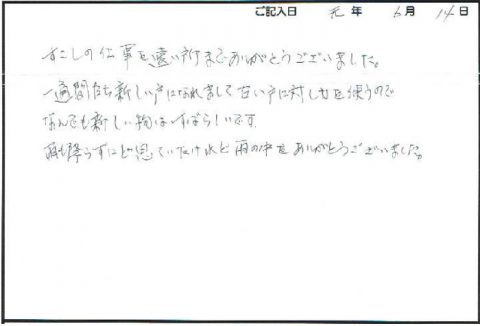 ご記入日 元年 6月 14日
すこしの仕事を遠い所までありがとうございました。
一週間たち新しい戸になれまして古い戸に対し力を使うので
なんでも新しい物はすばらしいです。
雨も降らずにと思っていたけれど雨の中をありがとうございました。